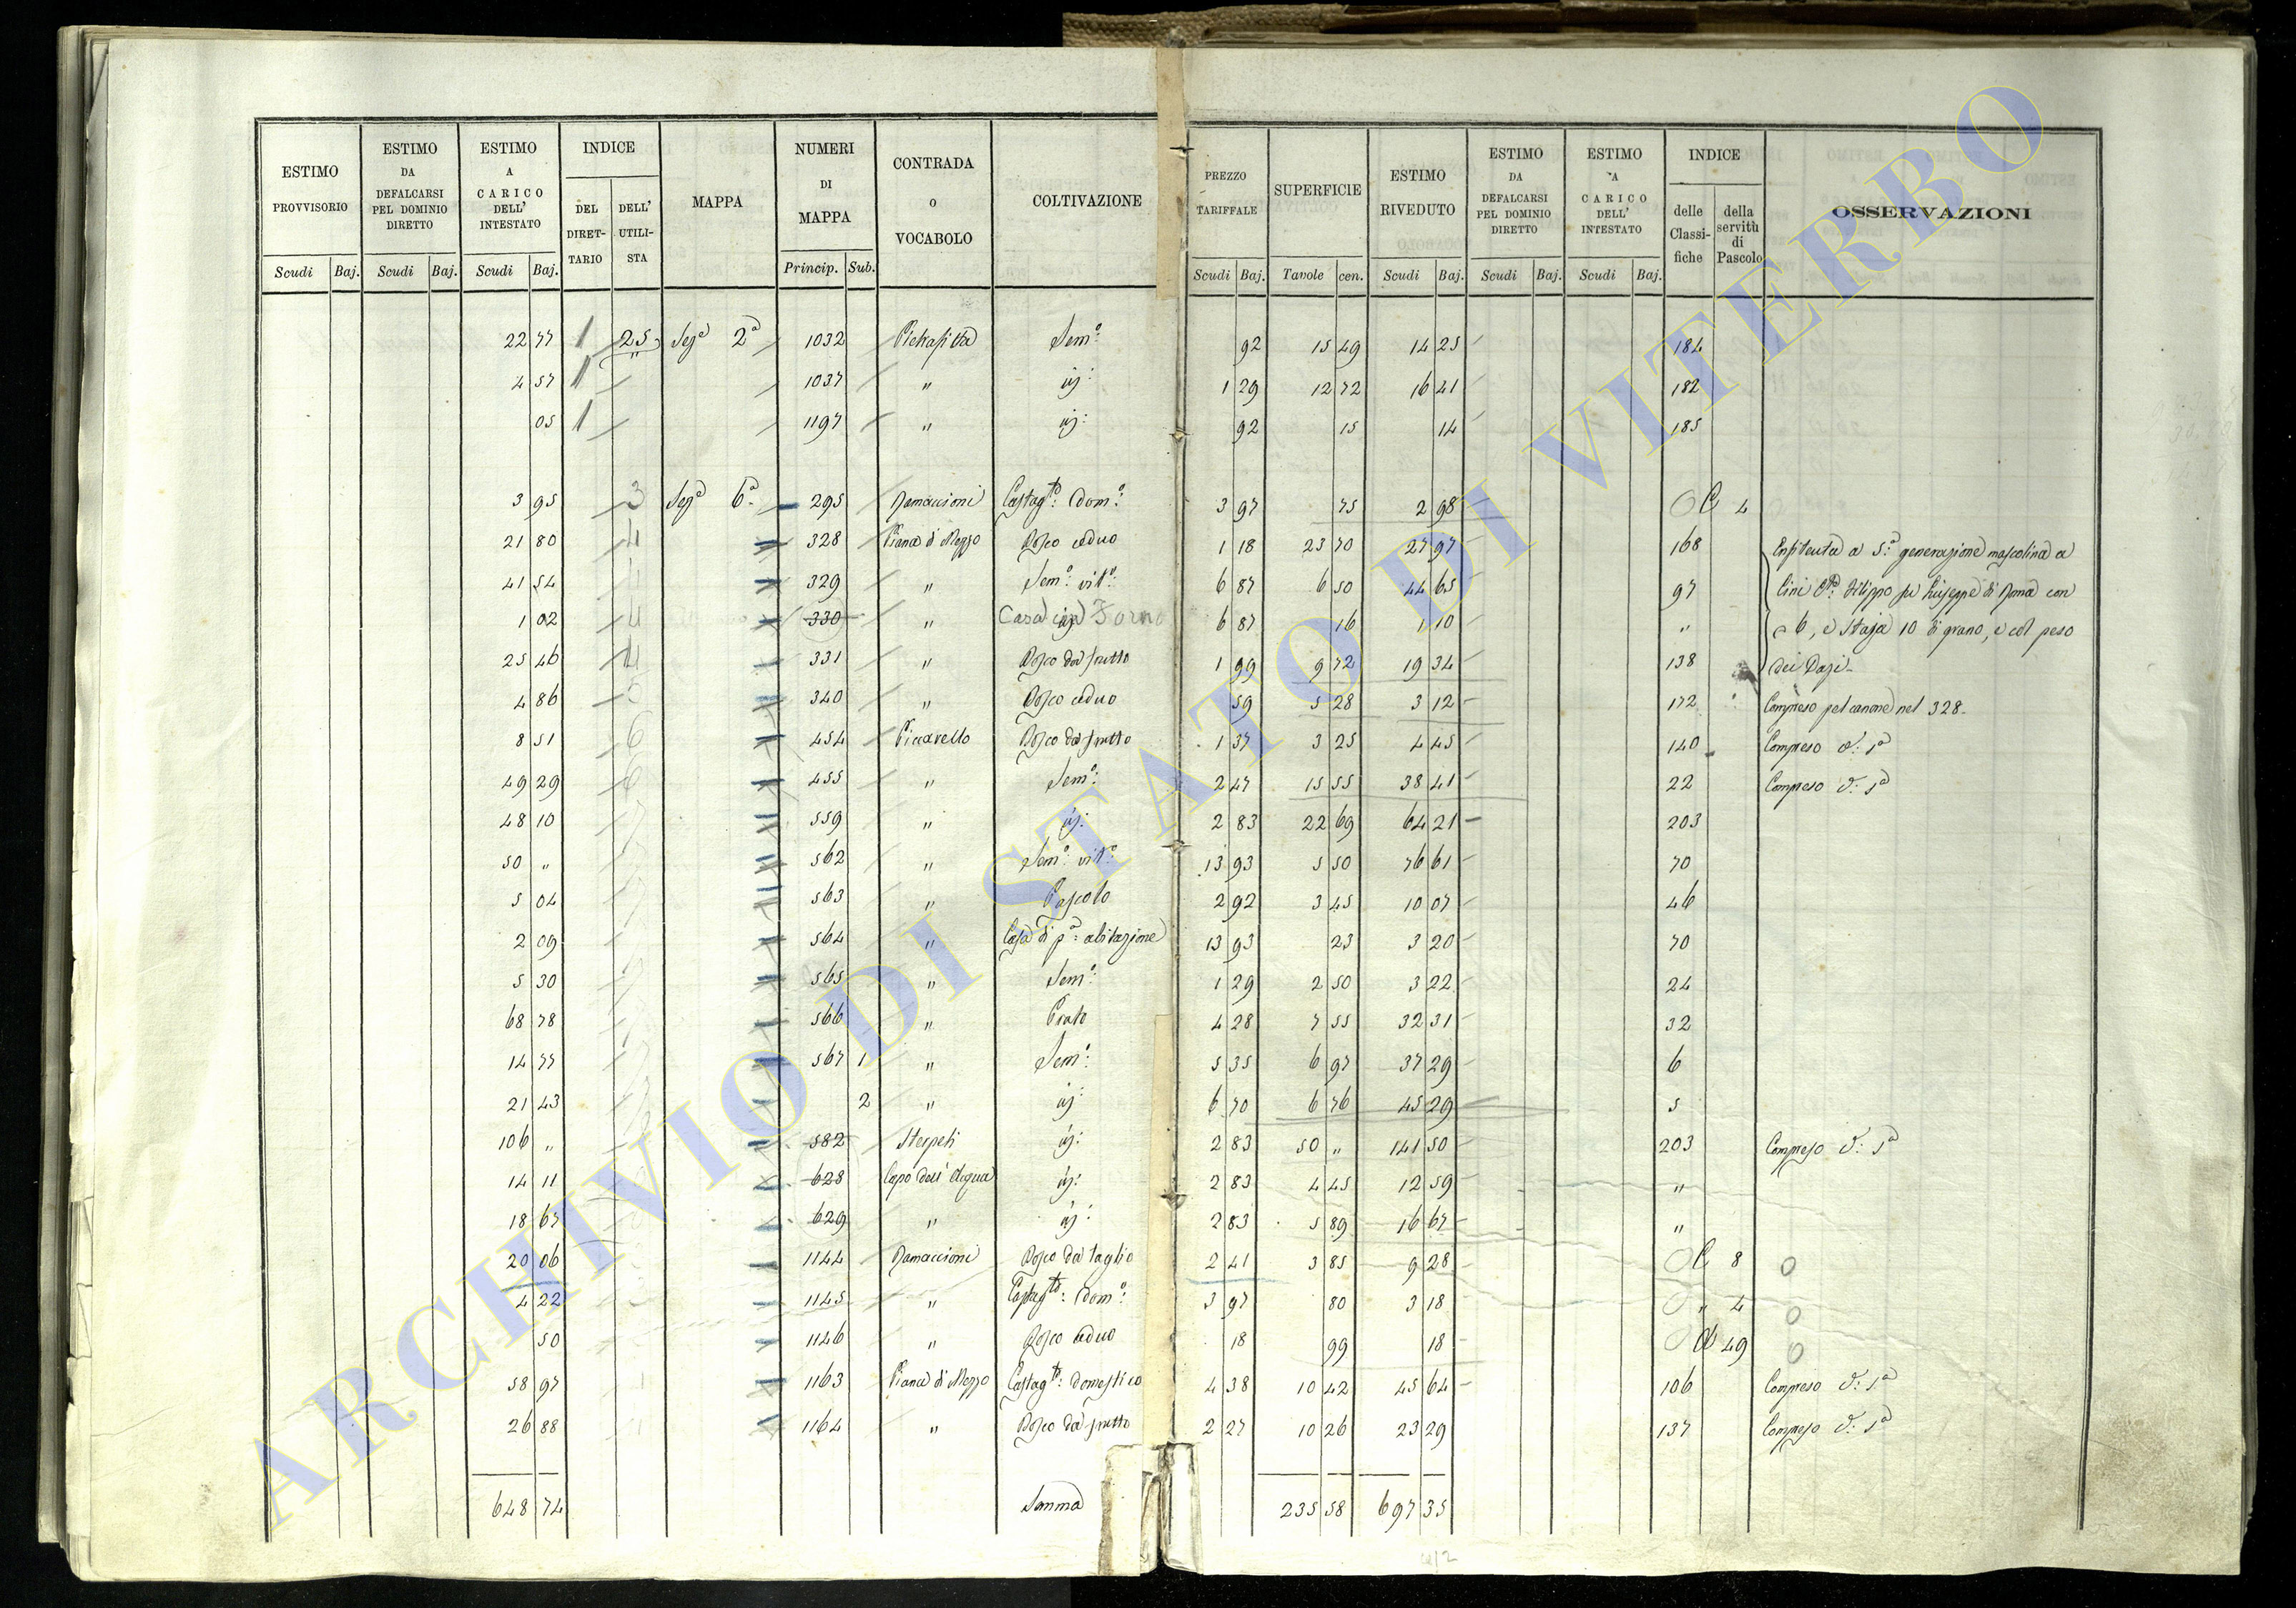 ESTIMO PROVVISORIO | ESTIMO DA DEFALCARSI PEL DOMINIO DIRETTO | ESTIMO A CARICO DELL' INTESTATO | INDICE | MAPPA | NUMERI DI MAPPA | CONTRADA o VOCABOLO | COLTIVAZIONE | PREZZO TARIFFALE | SUPERFICIE | ESTIMO RIVEDUTO | ESTIMO DA DEFALCARSI PEL DOMINIO DIRETTO | ESTIMO A CARICO DELL' INTESTATO | INDICE | OSSERVAZIONI
DEL DIRETTARIO | DELL' UTILISTA | delle Classifiche | della servitù di Pascolo
Scudi | Baj. | Scudi | Baj. | Scudi | Baj. | Princip. | Sub. | Scudi | Baj. | Tavole | cen. | Scudi | Baj. | Scudi | Baj. | Scudi | Baj.
22 77 | 1 | 25 | Seze 2a | 1032 | Sem.o | 92 | 15 49 | 14 25 | 184
4 57 | 1 | " | 1037 | " | id: | 1 29 | 12 72 | 16 41 | 182
05 | 1 | 1197 | " | id: | 92 | 15 | 14 | 185
3 95 | 3 | Seze 6a | 295 | Ramaccioni | Castagto: dom.o: | 3 97 | 75 | 2 98 | C 4
21 80 | 4 | 328 | Piana di Mezzo | Bosco ceduo | 1 18 | 23 70 | 27 97 | 168 | Enfiteuta a 3a generazione mascolina a
41 54 | 4 | 329 | " | Sem.o: vit.o: | 6 87 | 6 50 | 44 65 | 97 | Filippo fu Giuseppe di con
1 02 | 4 | 330 | " | Casa con Forno | id: | 6 87 | 16 | 1 10 | " | 6, e Staja 10 di grano, e col peso
25 46 | 4 | 331 | " | Bosco da frutto | 1 99 | 9 72 | 19 34 | 138 | dei Dazi
4 86 | 5 | 340 | " | Bosco ceduo | 59 | 5 28 | 3 12 | 172 | Compreso pel canone nel 328
8 51 | 6 | 454 | Piccarello | Bosco da frutto | 1 37 | 3 25 | 4 45 | 140 | Compreso c: sa
49 29 | 6 | 455 | " | Sem.o: | 2 47 | 15 55 | 38 41 | 22 | Compreso c: sa
48 10 | 7 | 559 | " | id: | 2 83 | 22 69 | 64 21 | 203
50 " | 7 | 562 | " | Sem.o: vit.o: | 13 93 | 5 50 | 76 61 | 70
5 04 | 7 | 563 | " | Pascolo | 2 92 | 3 45 | 10 07 | 46
2 09 | 7 | 564 | " | Casa di pa: abitazione | 13 93 | 23 | 3 20 | 70
5 30 | 7 | 565 | " | Sem.o: | 1 29 | 2 50 | 3 22 | 24
68 78 | 566 | " | Prato | 4 28 | 7 55 | 32 31 | 32
14 77 | 567 1 | " | Sem.o: | 5 35 | 6 97 | 37 29 | 6
21 43 | 2 | " | id: | 6 70 | 6 76 | 45 29 | 5
106 " | 582 | Sterpeti | id: | 2 83 | 50 " | 141 50 | 203 | Compreso c: sa
14 11 | 628 | Capo dell' Acqua | id: | 2 83 | 4 45 | 12 59 | "
18 67 | 629 | " | id: | 2 83 | 5 89 | 16 67 | "
20 06 | 1144 | Ramaccioni | Bosco da taglio | 2 41 | 3 85 | 9 28 | C 8
4 22 | 1145 | " | Castagto: dom.o: | 3 97 | 80 | 3 18 | " 4
50 | 1146 | " | Bosco ceduo | 18 | 99 | 18 | 49
58 97 | 1163 | Piana di Mezzo | Castagto: domestico | 4 38 | 10 42 | 45 64 | 106 | Compreso c: sa
26 88 | 1164 | " | Bosco da frutto | 2 27 | 10 26 | 23 29 | 137 | Compreso c: sa
648 74 | Somma | 235 58 | 697 35
412
ARCHIVIO DI STATO DI VITERBO